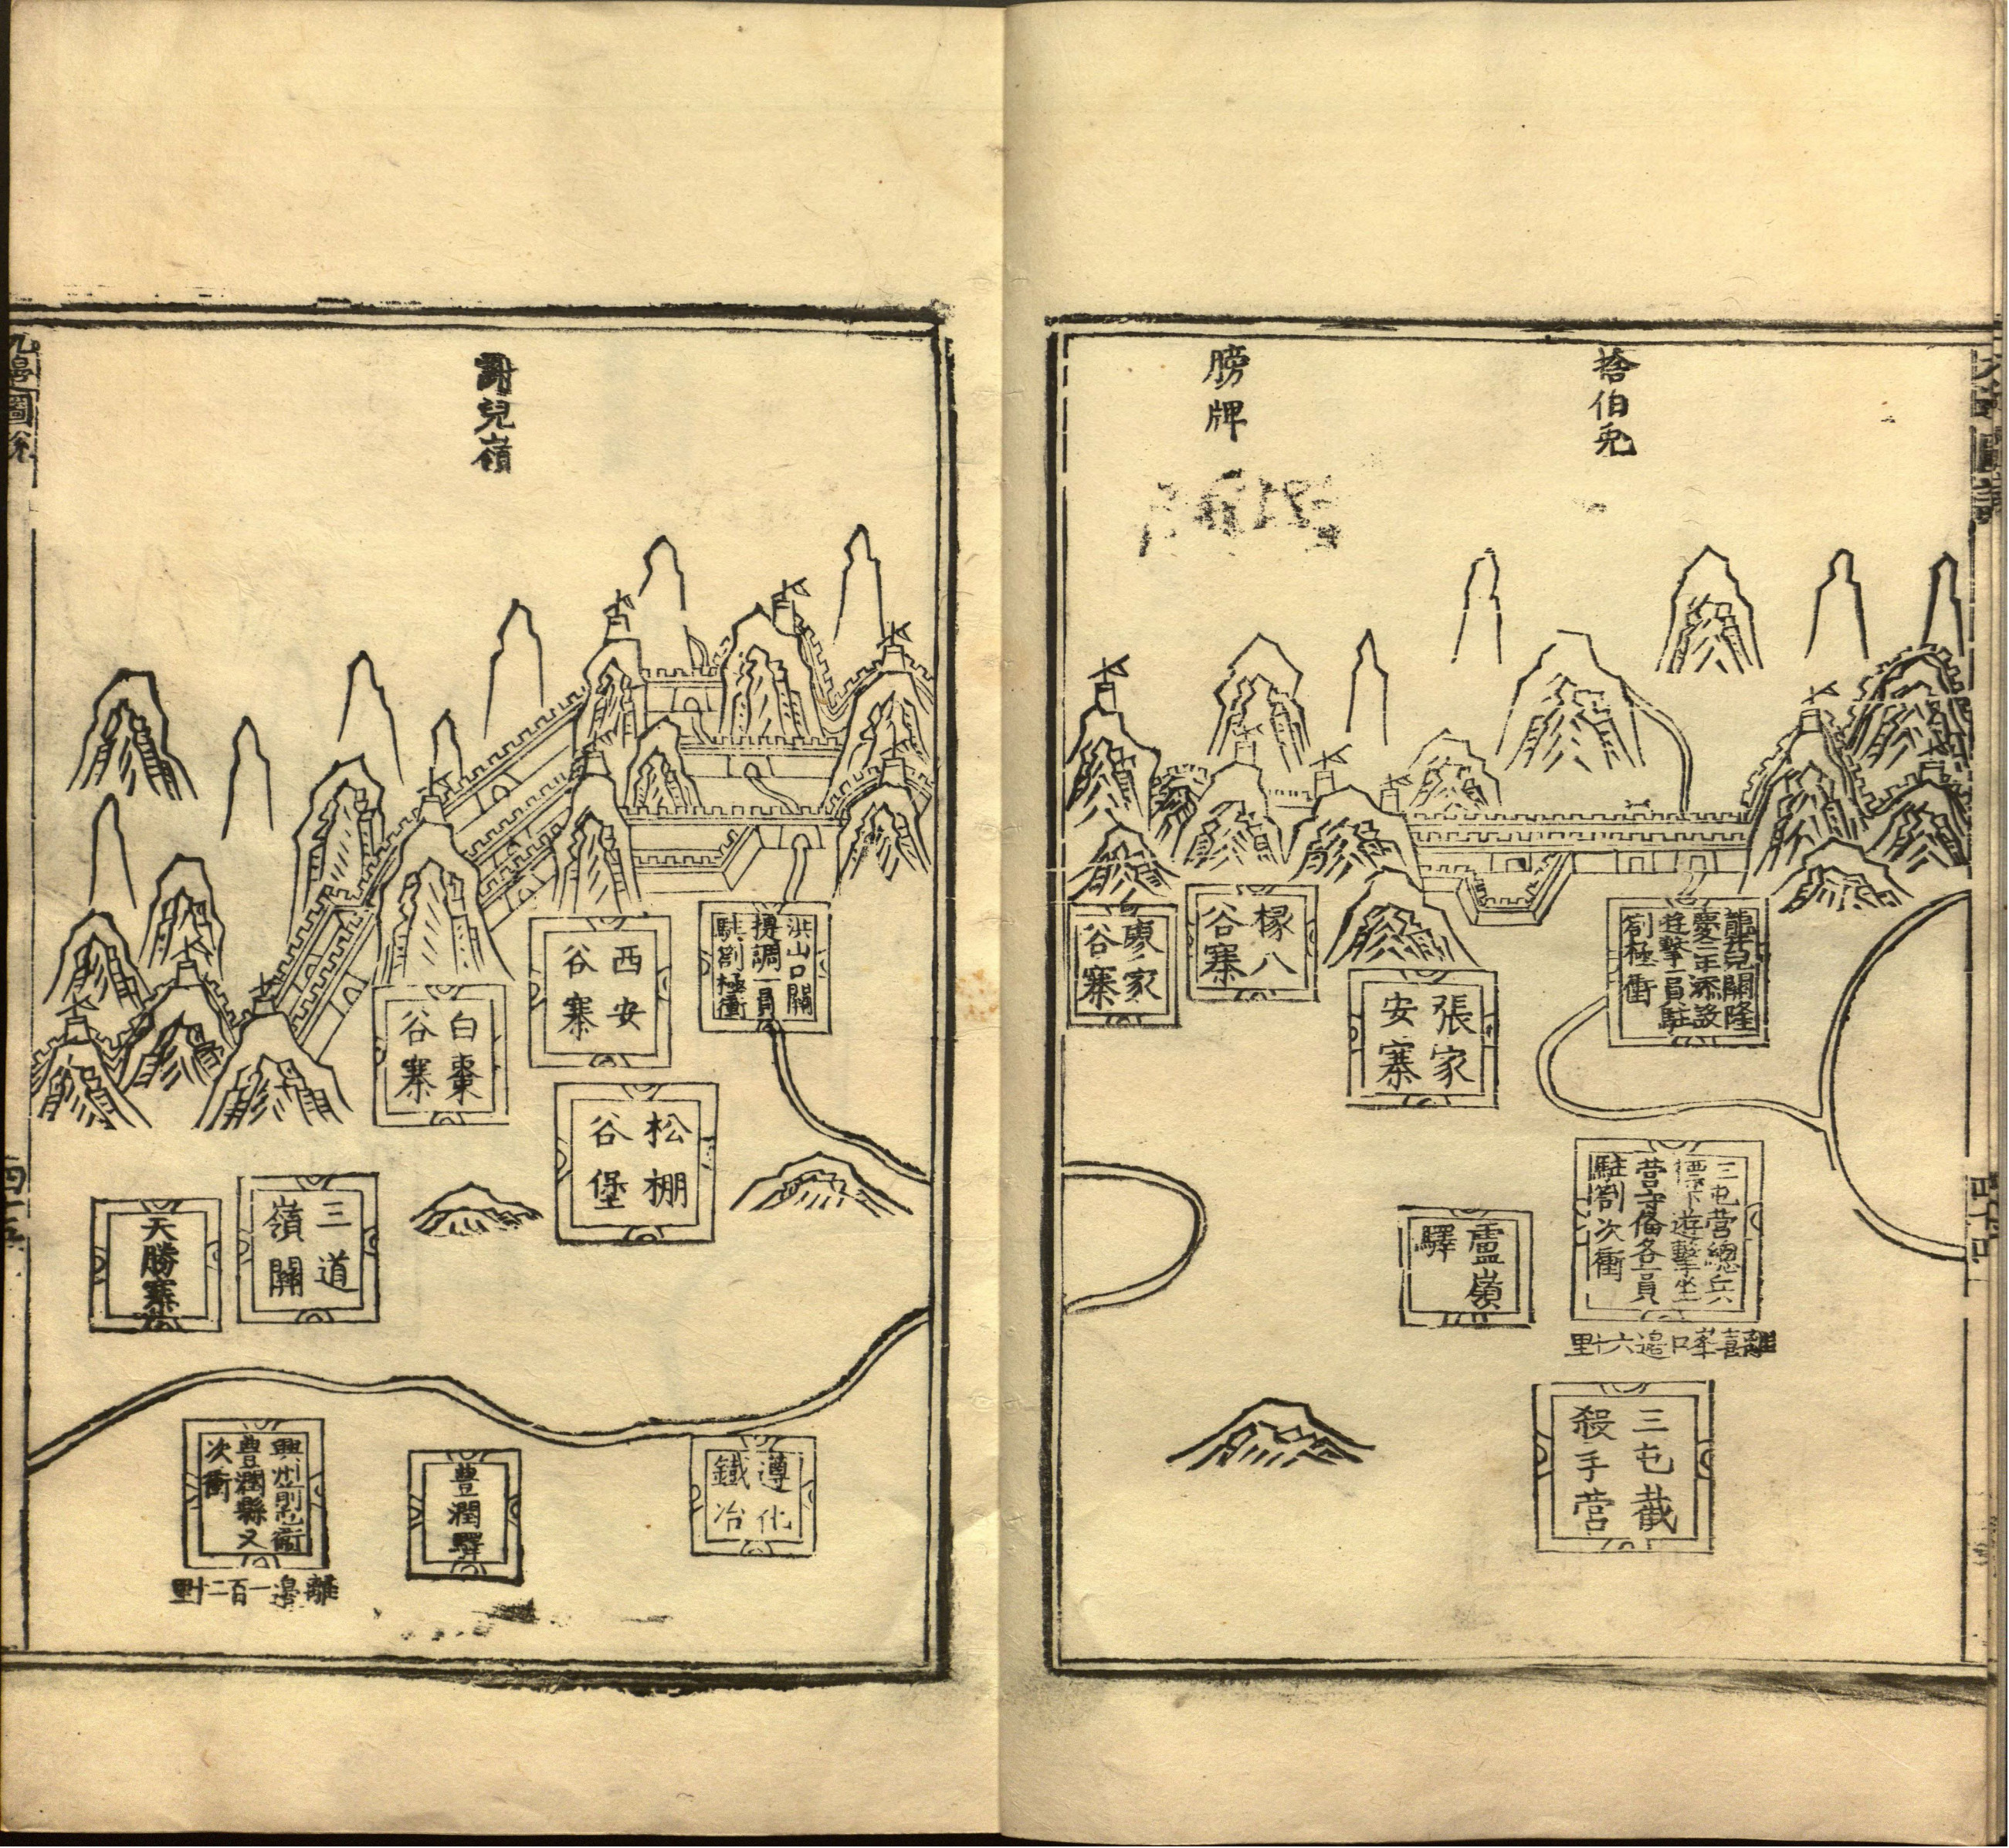 捨伯兎
牓牌
龍井兒關隆
慶三年添設
遊擊一員駐
劄極衝
張家
安寨
椽八
谷寨
廖家
谷寨
三屯营總兵
標下遊擊坐
营守俻各一員
駐劄次衝
離喜峯口邉六十里
盧嶺
驛
三屯截
殺手营
兒嶺
洪山口關
提調一員
駐劄極衝
西安
谷寨
白棗
谷寨
松棚
谷堡
三道
嶺關
天勝寨
遵化
鐵冶
豊潤驛
興州前屯衞
豊潤縣又
次衝
離邉一百二十里
九邉圖說